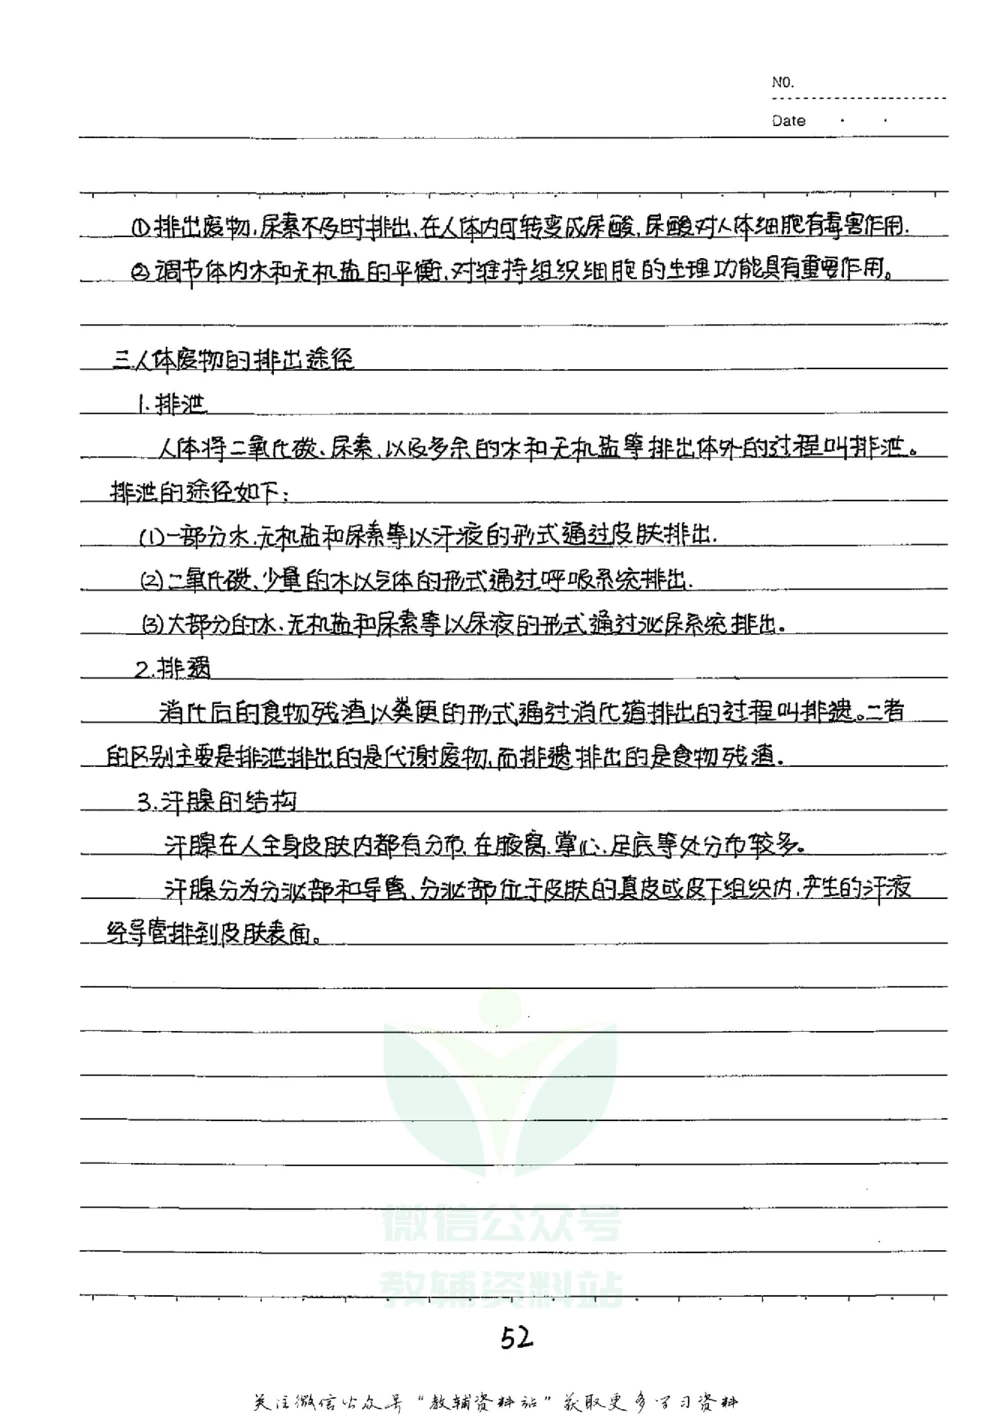 NO.
Date
①排出废物,尿素不及时排出,在人体内可转变成尿酸,尿酸对人体细胞有毒害作用.
②调节体内水和无机盐的平衡,对维持组织细胞的生理功能具有重要作用。
三.人体废物的排出途径
1.排泄
人体将二氧化碳、尿素,以及多余的水和无机盐等排出体外的过程叫排泄。
排泄的途径如下:
(1)一部分水、无机盐和尿素等以汗液的形式通过皮肤排出.
(2)二氧化碳、少量的水以气体的形式通过呼吸系统排出.
(3)大部分的水、无机盐和尿素等以尿液的形式通过泌尿系统排出。
2.排遗
消化后的食物残渣以粪便的形式,通过消化道排出的过程叫排遗。二者
的区别主要是排泄排出的是代谢废物,而排遗排出的是食物残渣.
3.汗腺的结构
汗腺在人全身皮肤内都有分布,在腋窝、掌心、足底等处分布较多。
汗腺分为分泌部和导管、分泌部位于皮肤的真皮或皮下组织内,产生的汗液
经导管排到皮肤表面。
微信公众号
教辅资料站
52
关注微信公众号“教辅资料站”获取更多学习资料